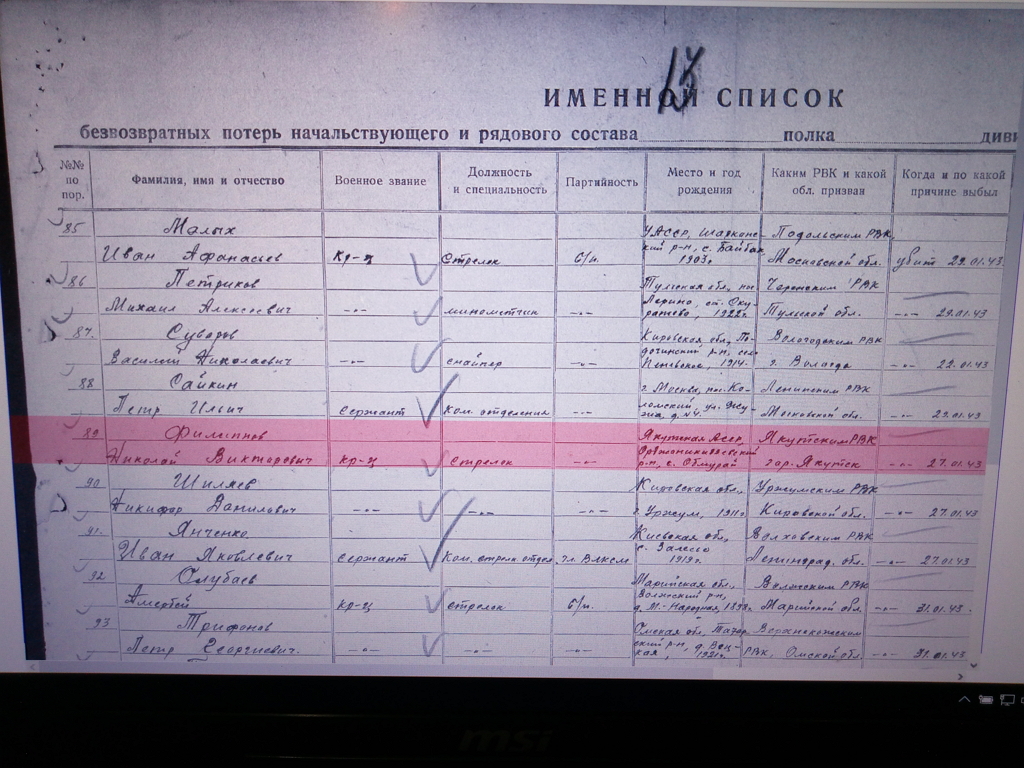 ИМЕННОЙ СПИСОК
безвозвратных потерь начальствующего и рядового состава полка диви
№№ по пор. Фамилия, имя и отчество Военное звание Должность и специальность Партийность Место и год рождения Каким РВК и какой обл. призван Когда и по какой причине выбыл
85 Малых УАССР, Шаркан- Подольским РВК,
Иван Афанасьев Кр-ц Стрелок б/п. ский р-н, с. 1903г Московской обл. убит 29.01.43
86 Петриков Тульская обл, Чернским РВК
Михаил Алексеевич -"- минометчик -"- 1922г. Тульской обл. -"- 29.01.43
87. Суворов Кировская обл, Вологодским РВК
Василий Николаевич -"- снайпер -"- р-н, 1914г. г. Вологда -"- 22.01.43
88 Сайкин г. Москва, Ленинским РВК
Петр Ильич Сержант Ком. отделения -"- Московской обл. -"- 29.01.43
89 Филиппов Якутская АССР, Якутским РВК
Николай Викторович кр-ц Стрелок -"- Орджоникидзевский р-н, с. гор. Якутск -"- 27.01.43
90 Шиляев Кировская обл, Уржумским РВК
Никифор Данилович -"- -"- -"- г. Уржум, 1911г Кировской обл. -"- 27.01.43
91. Янченко Киевская обл, Волховским РВК
Иван Яковлевич сержант Ком. стрелк отдел. чл ВЛКСМ с. Залесье 1919г. Ленинград. обл. -"- 27.01.43
92 Олубаев Марийская обл, Волжским РВК
кр-ц стрелок б/п. Волжский р-н, Марийской обл. -"- 31.01.43.
93 Трифонов Омская обл,
Петр Георгиевич. -"- -"- -"- 1921г. РВК, Омской обл. -"- 31.01.43
msi